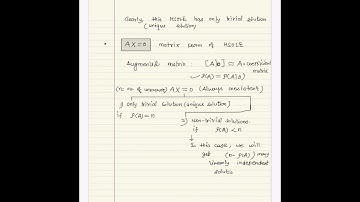 Clearly, this HSOLE has only trivial solution
(unique solution)
• AX=0 matrix form of HSOLE
Augmented matrix : [A|0] ≈ A = coefficient matrix
✓ ρ(A) = ρ(A|0)
(n: no of unknown) AX=0 (Always consistent)
1) only trivial solution (unique solution)
if ρ(A)=n
2) non-trivial solutions
if ρ(A)<n
In this case, we will
get (n-ρ(A)) many
linearly independent
solutio